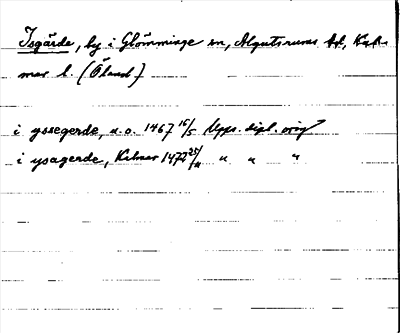 Isgärde, by i Glömminge sn, Algutsrums hd, Kal-
mar l. (Öland)
i yssegerde, u.o. 1467 16/5 Upps. dipl. orig
i ysagerde, 1472 25/ " " "